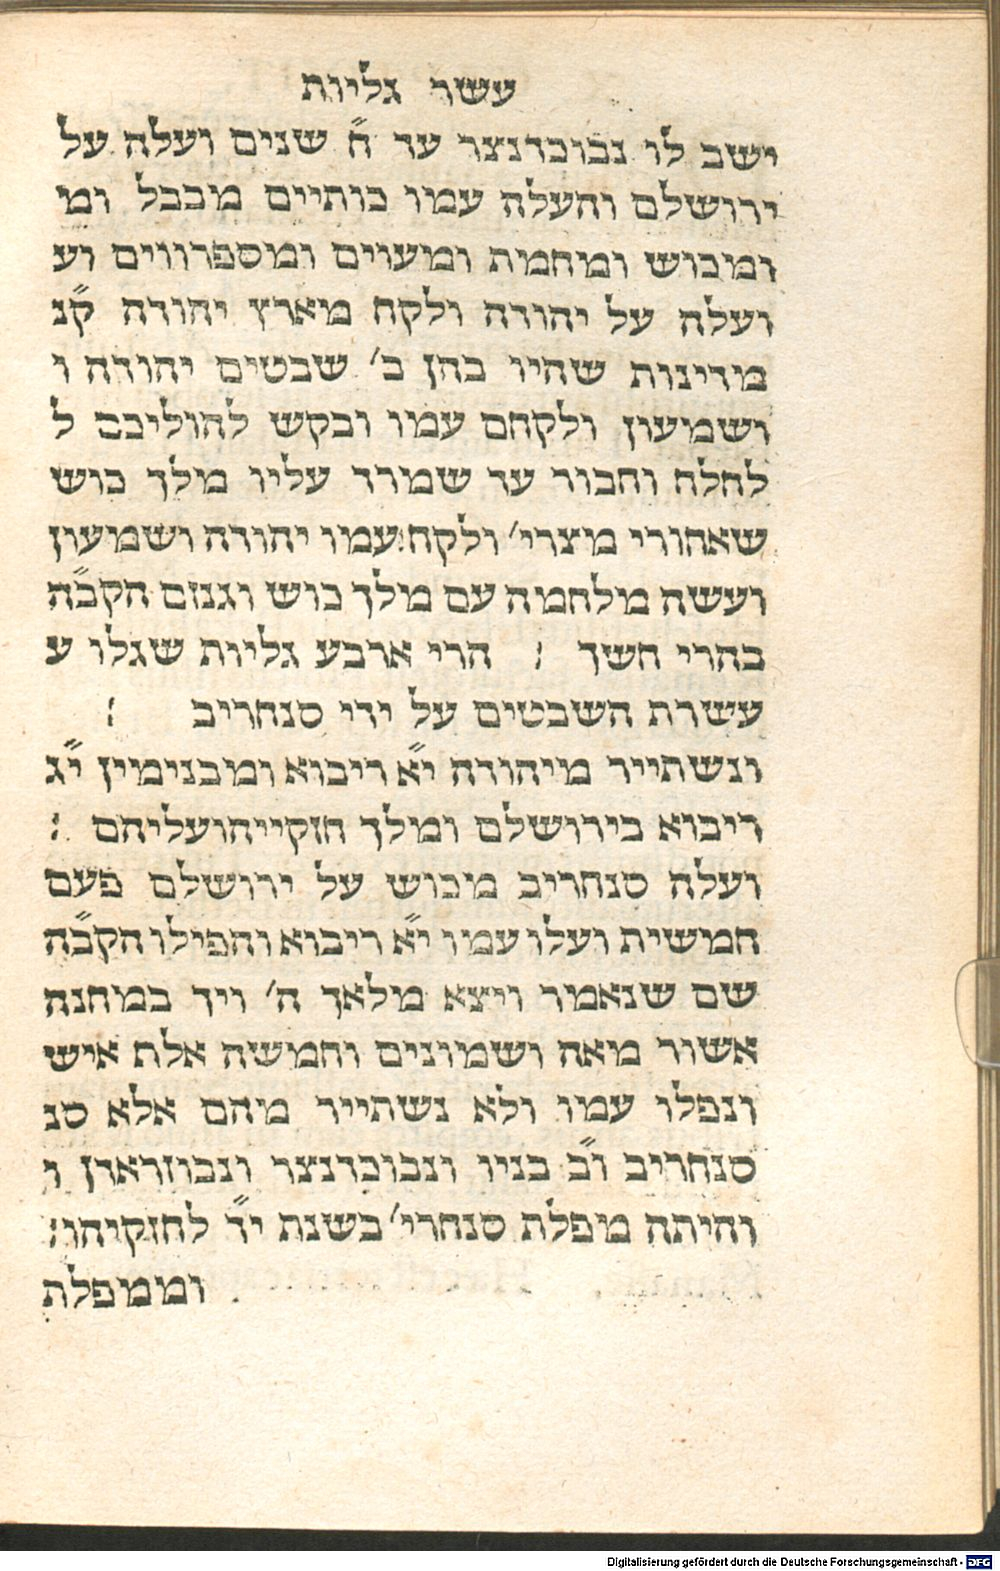 עשר גליות
ישב לו נבוכדנצר עד ח״ שנים ועלה על
ירושלם והעלה עמו כותיים מבבל ומ
ומכוש ומחמת ומעוים ומספרווים וע
ועלה על יהודה ולקח מארץ יהודה ק״נ
מדינות שהיו בהן ב׳ שבטים יהודה ו
ושמעון ולקחם עמו ובקש להוליכם ל
לחלח וחבור עד שמרד עליו מלך כוש
שאחורי מצרי׳ ולקח עמו יהודה ושמעון
ועשה מלחמה עם מלך כוש וגנזם הקב״ה
בהרי חשך : הרי ארבע גליות שגלו ע
עשרת השבטים על ידי סנחריב :
ונשתייר מיהודה י״א ריבוא ומבנימין י״ג
ריבוא בירושלם ומלך חזקייהועליהם :
ועלה סנחריב מכוש על ירושלם פעם
חמשית ועלו עמו י״א ריבוא והפילו הקב״ה
שם שנאמר ויצא מלאך ה׳ ויך במחנה
אשור מאה ושמונים וחמשה אלת איש
ונפלו עמו ולא נשתייר מהם אלא סנ
סנחריב וב״ בניו ונבוכדנצר ונבוזראדן ו
והיתה מפלת סנחרי׳ בשנת י״ד לחזקיהו:
וממפלת
Digitalisierung gefördert durch die Deutsche Forschungsgemeinschaft - DFG